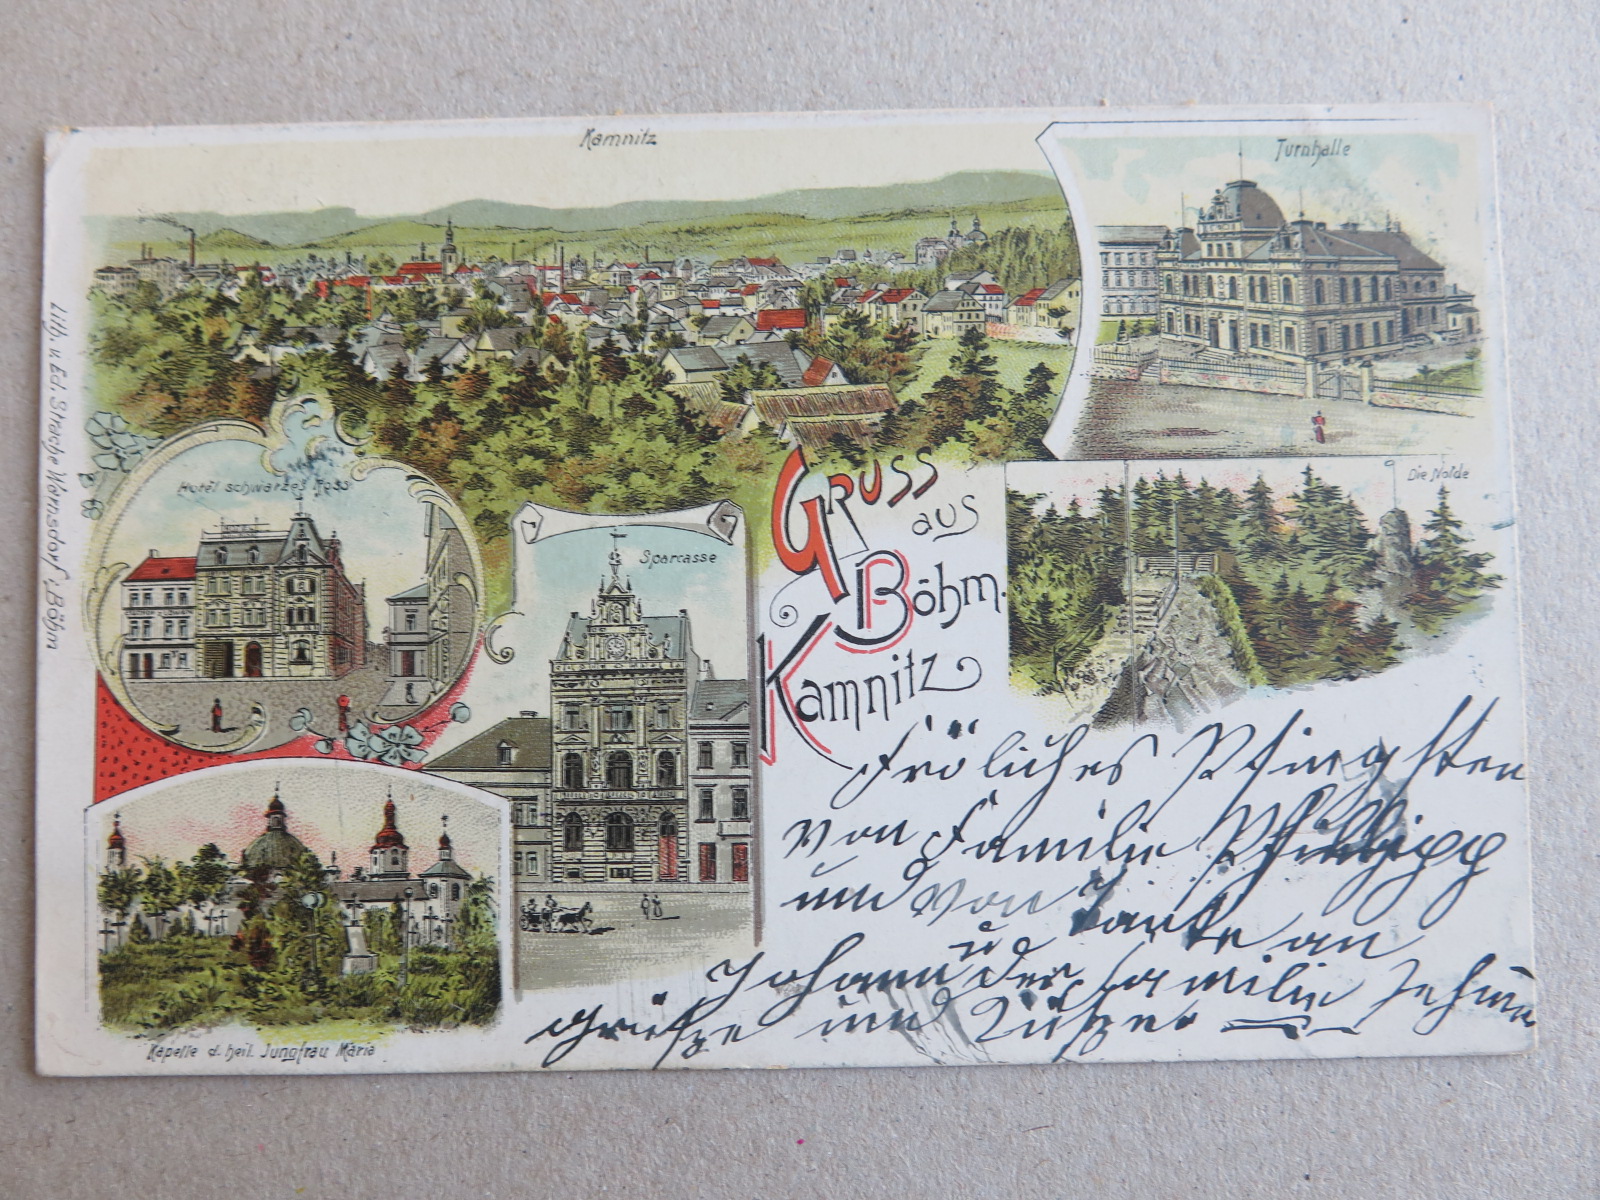 Kamnitz
Turnhalle
Hotel schwarzes Ross
Sparcasse
GRUSS
aus
Böhm.
Kamnitz
Die Nolde
Kapelle d. heil. Jungfrau Maria
Lith. v. Ed. Strache Warnsdorf i. Böhm
Fröliches Pfingsten
von Familie Philipp
und von Tante an
Johann u der Familie
Grüße und Küße